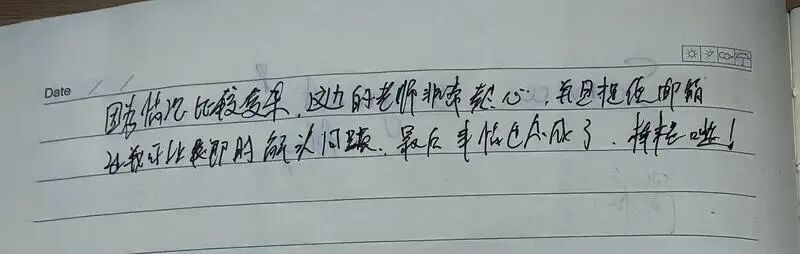 Date / /
因为情况比较复杂，这边的老师非常热心，并且提供邮箱
让我可以及时解决问题，最后事情已完成了，棒棒哒！